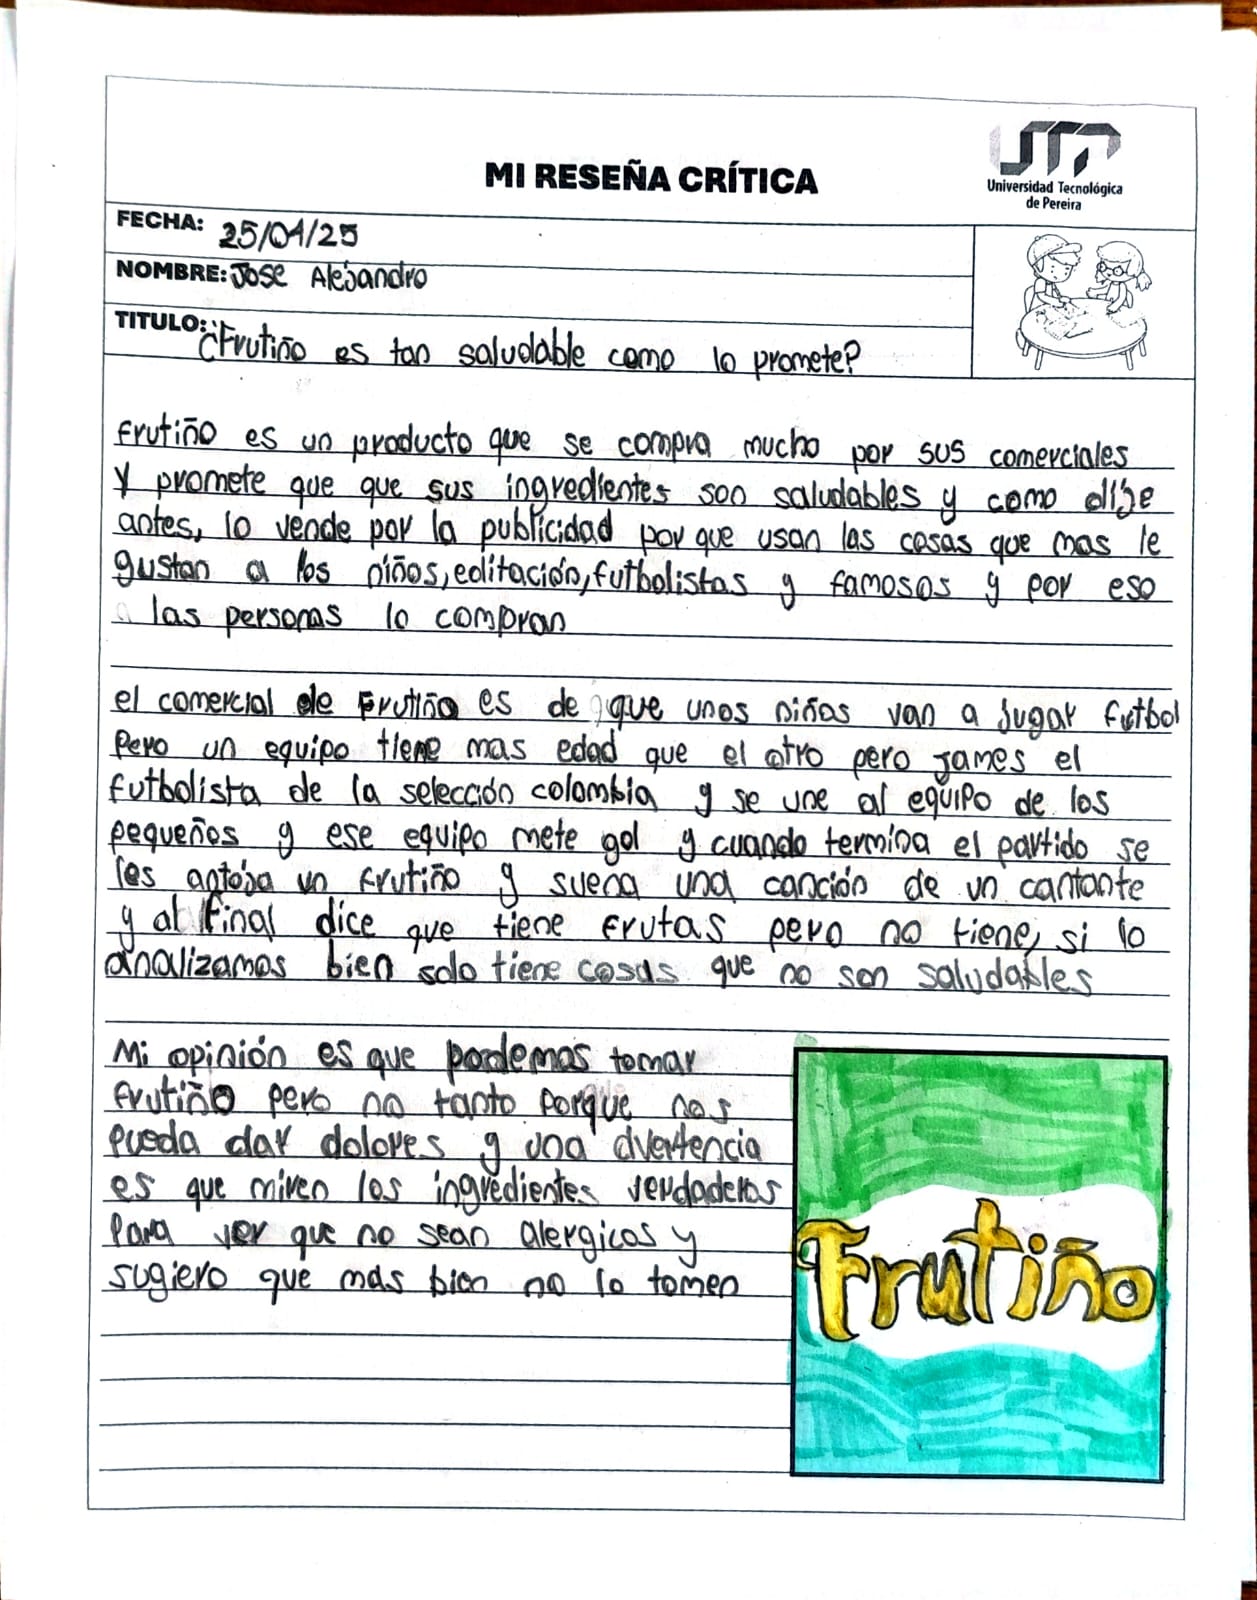 MI RESEÑA CRÍTICA
UTP
Universidad Tecnológica
de Pereira
FECHA: 25/04/25
NOMBRE: Jose Alejandro
TITULO: ¿Frutiño es tan saludable como lo promete?
frutiño es un producto que se compra mucho por sus comerciales
y promete que que sus ingredientes son saludables y como dije
antes, lo vende por la publicidad por que usan las cosas que mas le
gustan a los niños, editación, futbolistas y famosos y por eso
las personas lo compran
el comercial de Frutiño es de que unos niños van a jugar futbol
Pero un equipo tiene mas edad que el otro pero james el
futbolista de la selección colombia y se une al equipo de los
pequeños y ese equipo mete gol y cuando termina el partido se
les antoja un frutiño y suena una canción de un cantante
y al final dice que tiene frutas pero no tiene, si lo
analizamos bien solo tiene cosas que no son saludables
Mi opinión es que podemos tomar
frutiño pero no tanto porque nos
pueda dar dolores y una dvertencia
es que miren los ingredientes verdaderos
Para ver que no sean alergicos y
sugiero que mas bien no lo tomen
Frutiño